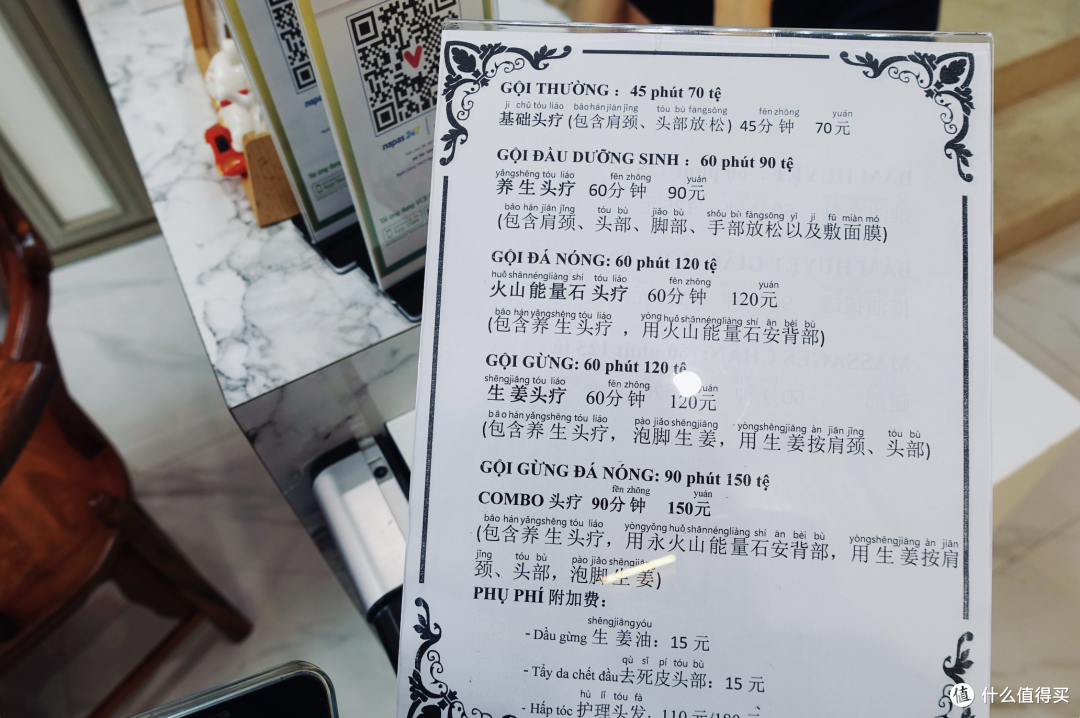 napas 247
GỘI THƯỜNG : 45 phút 70 tệ
jī chǔ tóu liáo bāo hán jiān jǐng tóu bù fàng sōng fēn zhōng yuán
基础头疗 (包含肩颈、头部放松) 45分钟 70元
GỘI ĐẦU DƯỠNG SINH : 60 phút 90 tệ
yǎng shēng tóu liáo fēn zhōng yuán
养生头疗 60分钟 90元
bāo hán jiān jǐng tóu bù jiǎo bù shǒu bù fàng sōng yǐ jí fū miàn mó
(包含肩颈、头部、脚部、手部放松以及敷面膜)
GỘI ĐÁ NÓNG: 60 phút 120 tệ
huǒ shān néng liàng shí tóu liáo fēn zhōng yuán
火山能量石 头疗 60分钟 120元
bāo hán yǎng shēng tóu liáo yòng huǒ shān néng liàng shí ān bèi bù
(包含养生头疗 ，用火山能量石安背部)
GỘI GỪNG: 60 phút 120 tệ
shēng jiāng tóu liáo fēn zhōng yuán
生姜头疗 60分钟 120元
bāo hán yǎng shēng tóu liáo pào jiǎo shēng jiāng yòng shēng jiāng àn jiān jǐng tóu bù
(包含养生头疗，泡脚生姜，用生姜按肩颈、头部)
GỘI GỪNG ĐÁ NÓNG: 90 phút 150 tệ
fēn zhōng yuán
COMBO 头疗 90分钟 150元
bāo hán yǎng shēng tóu liáo yòng yǒng huǒ shān néng liàng shí ān bèi bù yòng shēng jiāng àn jiān
(包含养生头疗，用永火山能量石安背部，用生姜按肩
jǐng tóu bù pào jiǎo shēng jiāng
颈、头部，泡脚生姜)
PHỤ PHÍ 附加费:
shēng jiāng yóu
- Dầu gừng 生姜油: 15 元
qù sǐ pí tóu bù
- Tẩy da chết đầu去死皮头部: 15 元
hù lǐ tóu fà
- Hấp tóc 护理头发: 110 元/180 元
值 什么值得买